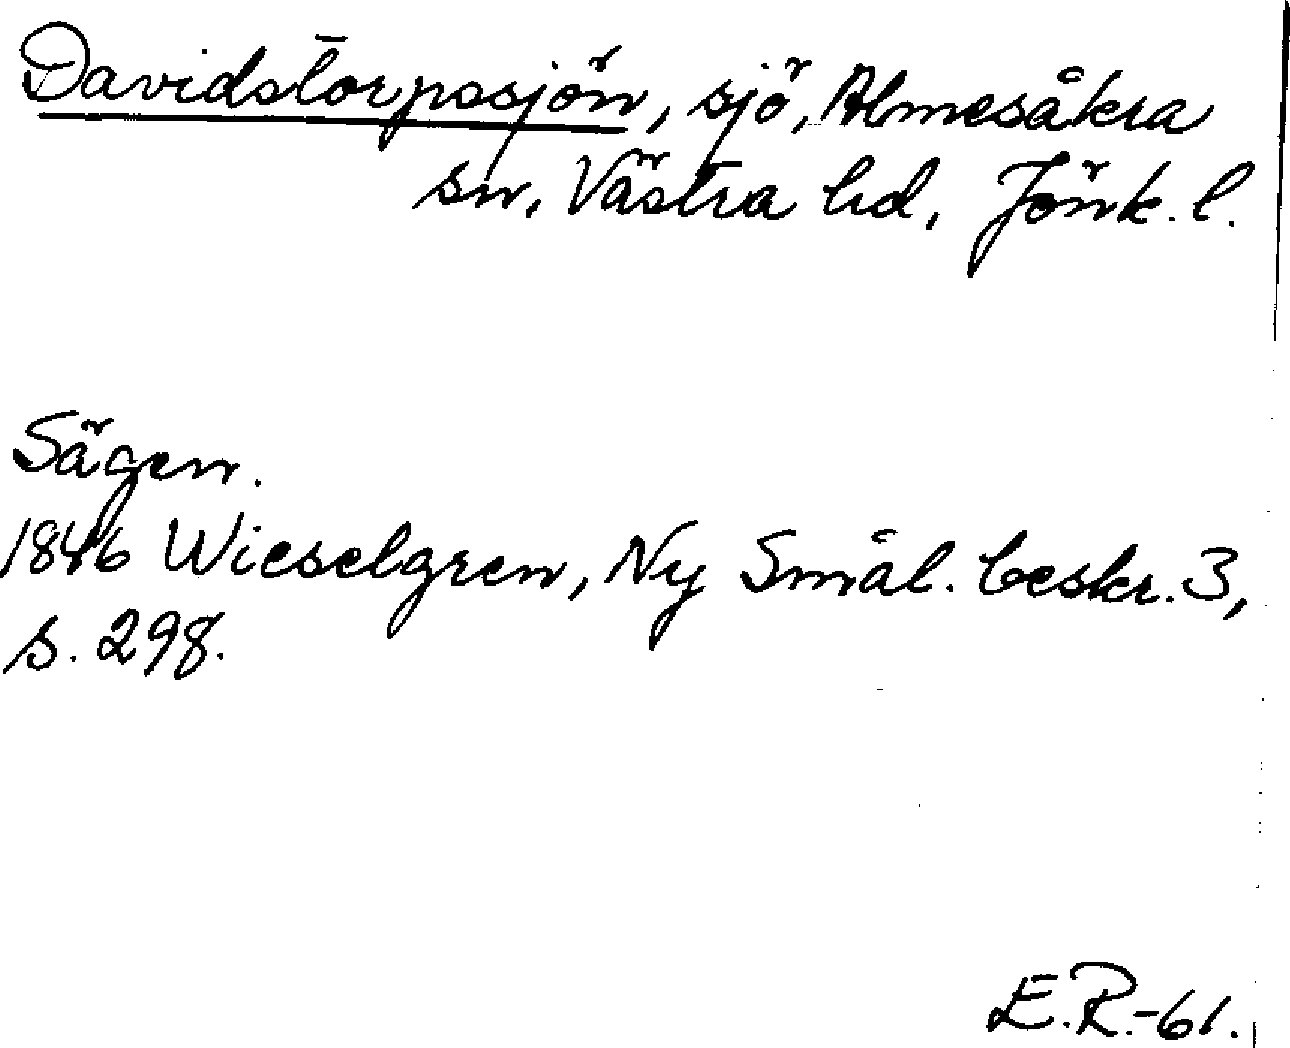 Davidstorpasjön, sjö, Almesåkra
sn, Västra hd, Jönk. l.
Sägen.
1846 Wieselgren, Ny Smål. beskr. 3,
s. 298.
E.R.-61.